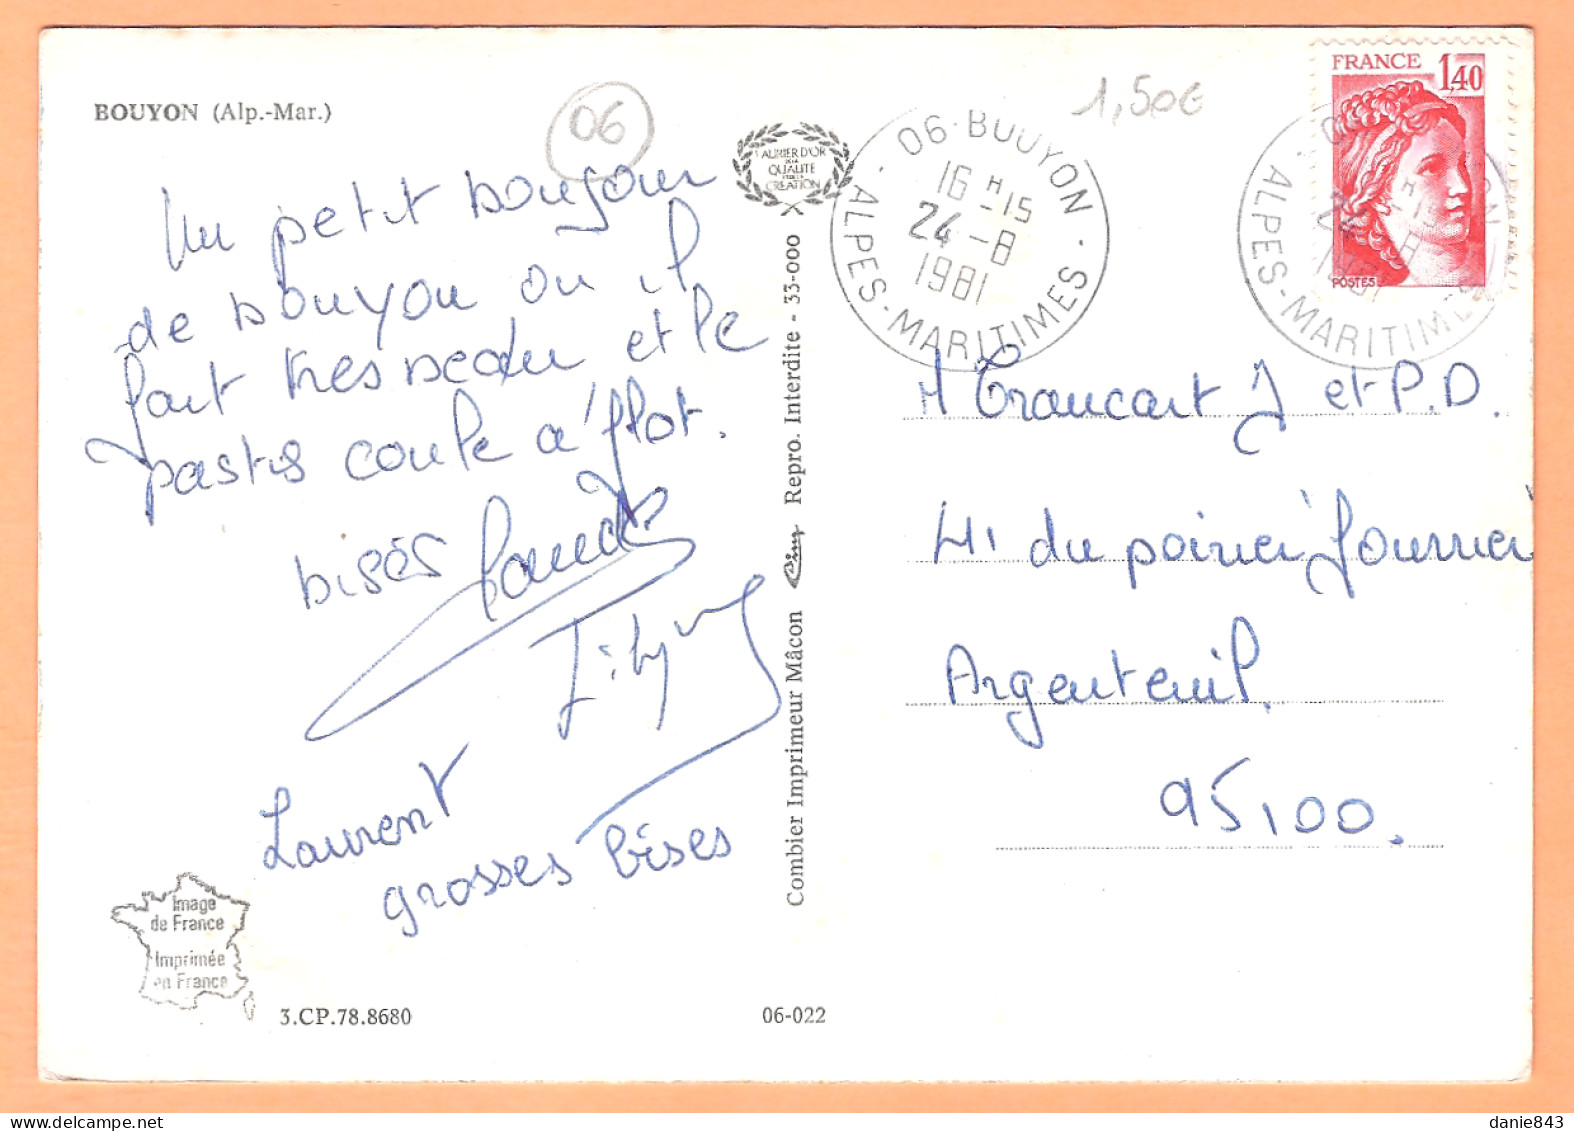 BOUYON (Alp.-Mar.)
06
1,50€
LAURIER D'OR
DE LA
QUALITÉ
CRÉATION
06 - BOUYON
16 H -15
24 -8
1981
- ALPES-MARITIMES -
FRANCE 1,40
POSTES
ALPES-MARITIMES
Un petit bonjour
de Bouyon ou il
fait tres beau et le
pastis coule a flot.
bisés
Laurent
grosses bises
M Trancart J et P.D.
41 du poirier fourrier
Argenteuil
95100.
Combier Imprimeur Mâcon Cim Repro. Interdite - 33-000
Image
de France
Imprimée
en France
3.CP.78.8680
06-022
danie843